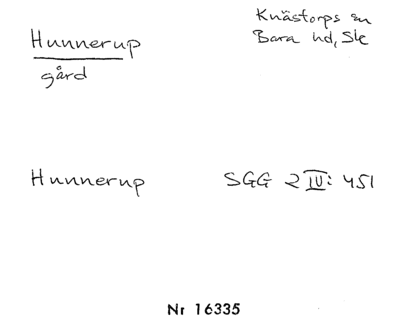 Hunnerup
gård
Knästorps sn
Bara hd, Ske
Hunnerup
SGG 2 IV: 451
Nr 16335